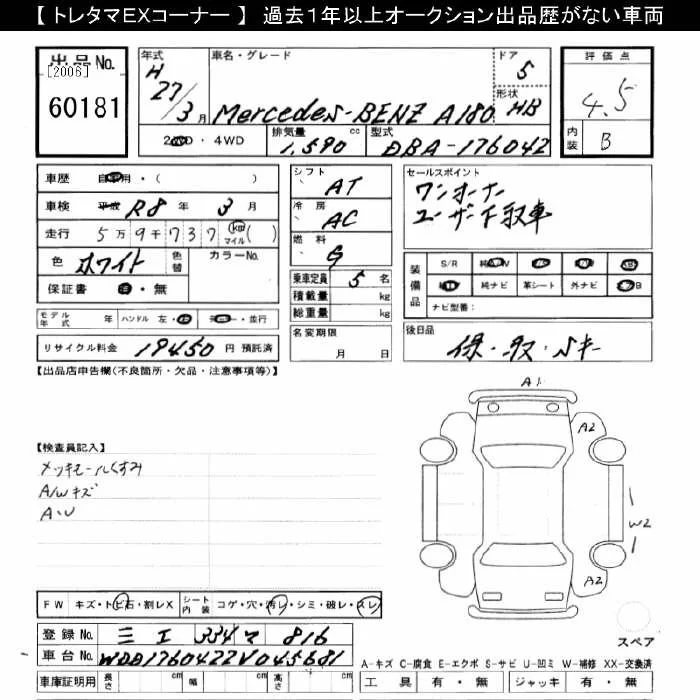 【 トレタマEXコーナー 】 過去１年以上オークション出品歴がない車両
出品No.
[2006]
60181
年式 H 27/3月
車名・グレード
Mercedes-BENZ A180
ドア 5
形状 HB
評価点
4.5
内装 B
2WD・4WD
排気量 1,590 cc
型式 DBA-176042
車歴 自家用・( )
車検 平成 R8 年 3 月
走行 5万9千737 km マイル ( )
色 ホワイト 色替 カラーNo.
保証書 有・無
モデル年式 年 ハンドル 左・右 ・並行
リサイクル料金 19450 円 預託済
シフト AT
冷房 AC
燃料 G
乗車定員 5 名
積載量 kg
総重量 kg
名変期限
月 日
セールスポイント
ワンオーナー
ユーザー下取車
装備品 S/R 純A/W
純ナビ 革シート 外ナビ
ナビ型番：
後日品
保・取・Sキー
【出品店申告欄(不良箇所・欠品・注意事項等)】
【検査員記入】
メッキモールくすみ
A/Wキズ
A・U
A1
A2
W2
A2
FW キズ・トビ石・割レX シート内装 コゲ・穴・汚レ・シミ・破レ・スレ
登録No. 三重 334 マ 816
車台No. WDD1760422V045681
車庫証明用 長さ cm 幅 cm 高さ cm
スペア
A-キズ C-腐食 E-エクボ S-サビ U-凹ミ W-補修 XX-交換済
工具 有・無 ジャッキ 有・無